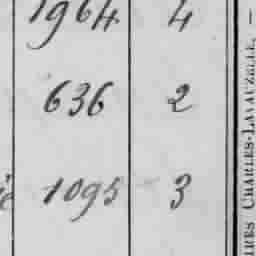 1964 4
636 2
1095 3
IRES CHARLES-LAVAUZELLE. —